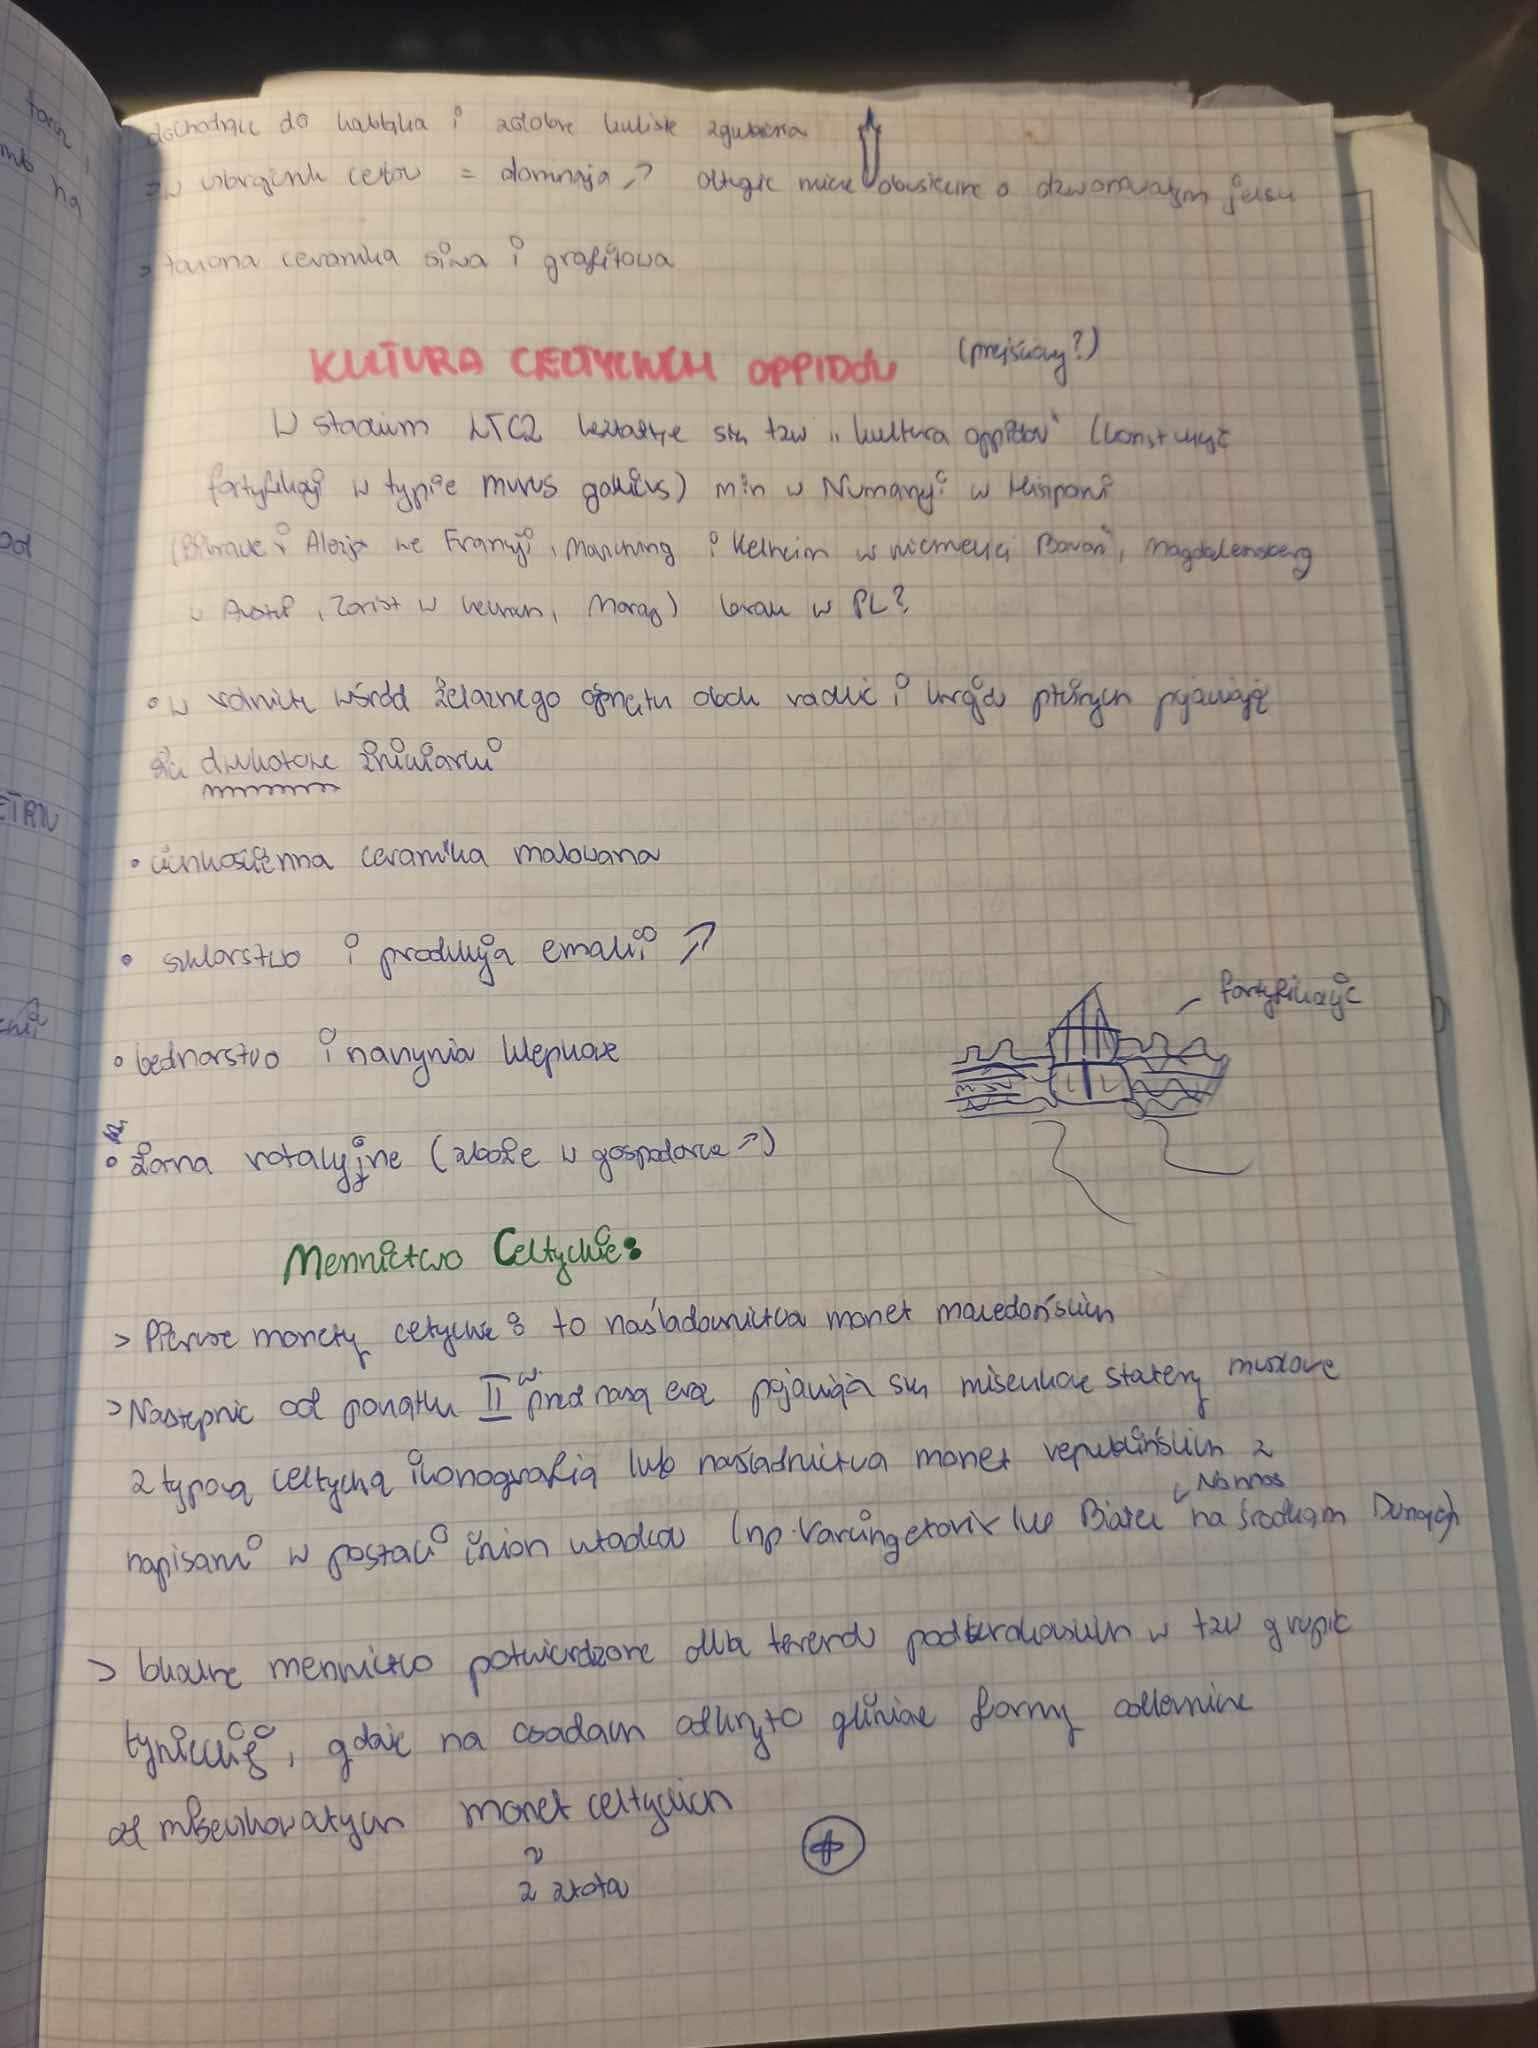 dochodzące do kabłąka i zdobne kuliste zgrubienia
w uzbrojeniu celtów = dominują ↗ długie miecze obosieczne o dzwonowatym jelcu
> toczona ceramika siwa i grafitowa
KULTURA CELTYCKICH OPPIDÓW (przejściowy?)
W stadium LTC2 kształtuje się tzw „kultura oppidów" (konstrukcje
fortyfikacji w typie murus gallicus) min w Numancji w Hiszpanii
(Bibracte i Alezja we Francji, Manching i Kelheim w niemieckiej Bawarii, Magdalensberg
w Austrii, Zavist w Czechach, Morawy) brak w PL?
• w rolnictwie wśród żelaznego oprzętu obok radlic i krojów płużnych pojawiają
się dwukołowe żniwiarki
• cienkościenna ceramika malowana
• szklarstwo i produkcja emalii ↗
fortyfikacje
• bednarstwo i naczynia klepkowe
• żarna rotacyjne (zboże w gospodarce ↗)
Mennictwo Celtyckie:
> Pierwsze monety celtyckie: to naśladownictwa monet macedońskich
> Następnie od początku II w. przed naszą erą pojawiają się miseczkowe statery muszlowe
z typową celtycką ikonografią lub naśladnictwa monet republikańskich z
Nonnos
napisami w postaci imion władców (np. Varcingetorix lub Biatec na środkowym Dunajem)
> lokalne mennictwo potwierdzone dla terenów podkrakowskich w tzw grupie
tynieckiej, gdzie na osadach odkryto gliniane formy odlewnicze
od miseczkowatych monet celtyckich
z złota